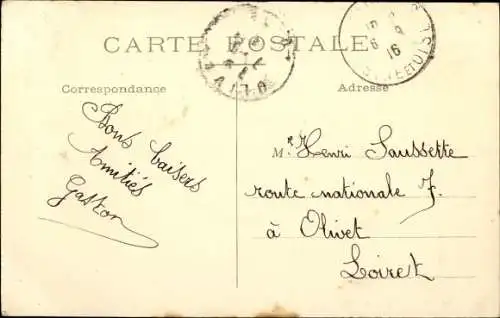 CARTE POSTALE
Correspondance
Adresse
Bons baisers
Amitiés
Gaston
Mr Henri Saussette
route nationale 7.
à Olivet
Loiret
16